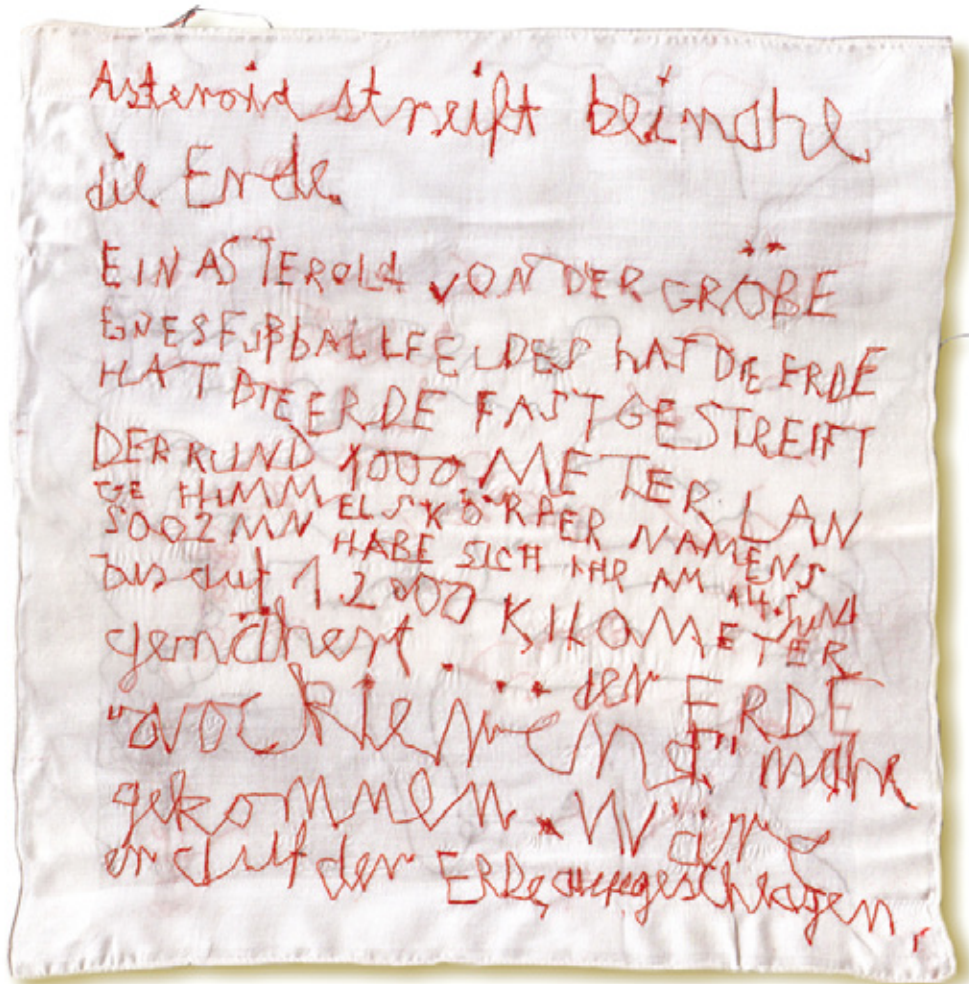 Asteroid streift beinahe
die Erde
EIN ASTEROId VON DER GRÖßE
EINES FUßbALLFELDES hAT DIE ERDE
HAT DIE ERDE FAST GESTREIFT
DER RUND 1000 METER LAN
GE HIMMELSKÖRPER NAMENS
2002 MN HABE SICH IHR AM
bis auf 12000 KILOMETER
genähert der ERDE
nahe
gekommen. Wäre
er auf der ERDe aufgeschlagen,